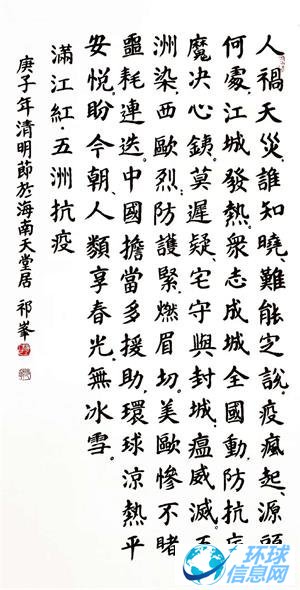 人禍天災,誰知曉,難能定說。疫瘋起,源頭
何處,江城發熱。衆志成城全國動,防抗疫
魔決心銕。莫遲疑,宅守與封城,瘟威滅。五
洲染,西歐烈。防護緊,燃眉切。美歐慘不睹
噩耗連迭。中國擔當多援助,環球涼熱平
安悅盼今朝,人類享春光,無冰雪。
滿江紅·五洲抗疫
庚子年清明節於海南天堂居 祁峯
环球
信息网